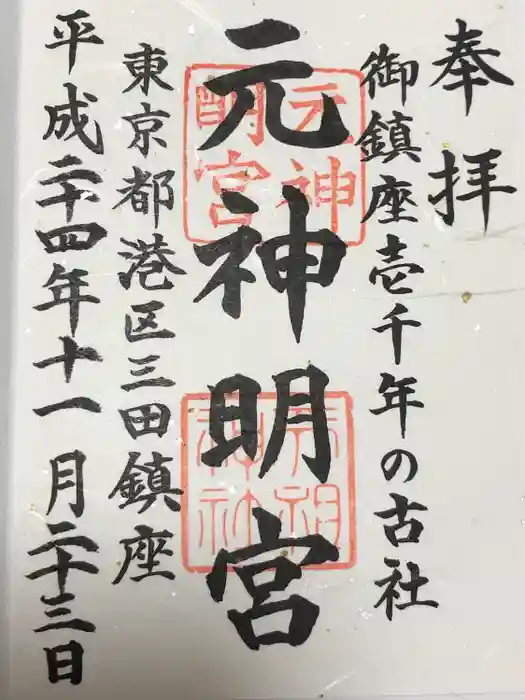 奉拝
御鎮座壱千年の古社
元神明宮
元神明宮
天祖神社
東京都港区三田鎮座
平成二十四年十一月二十三日